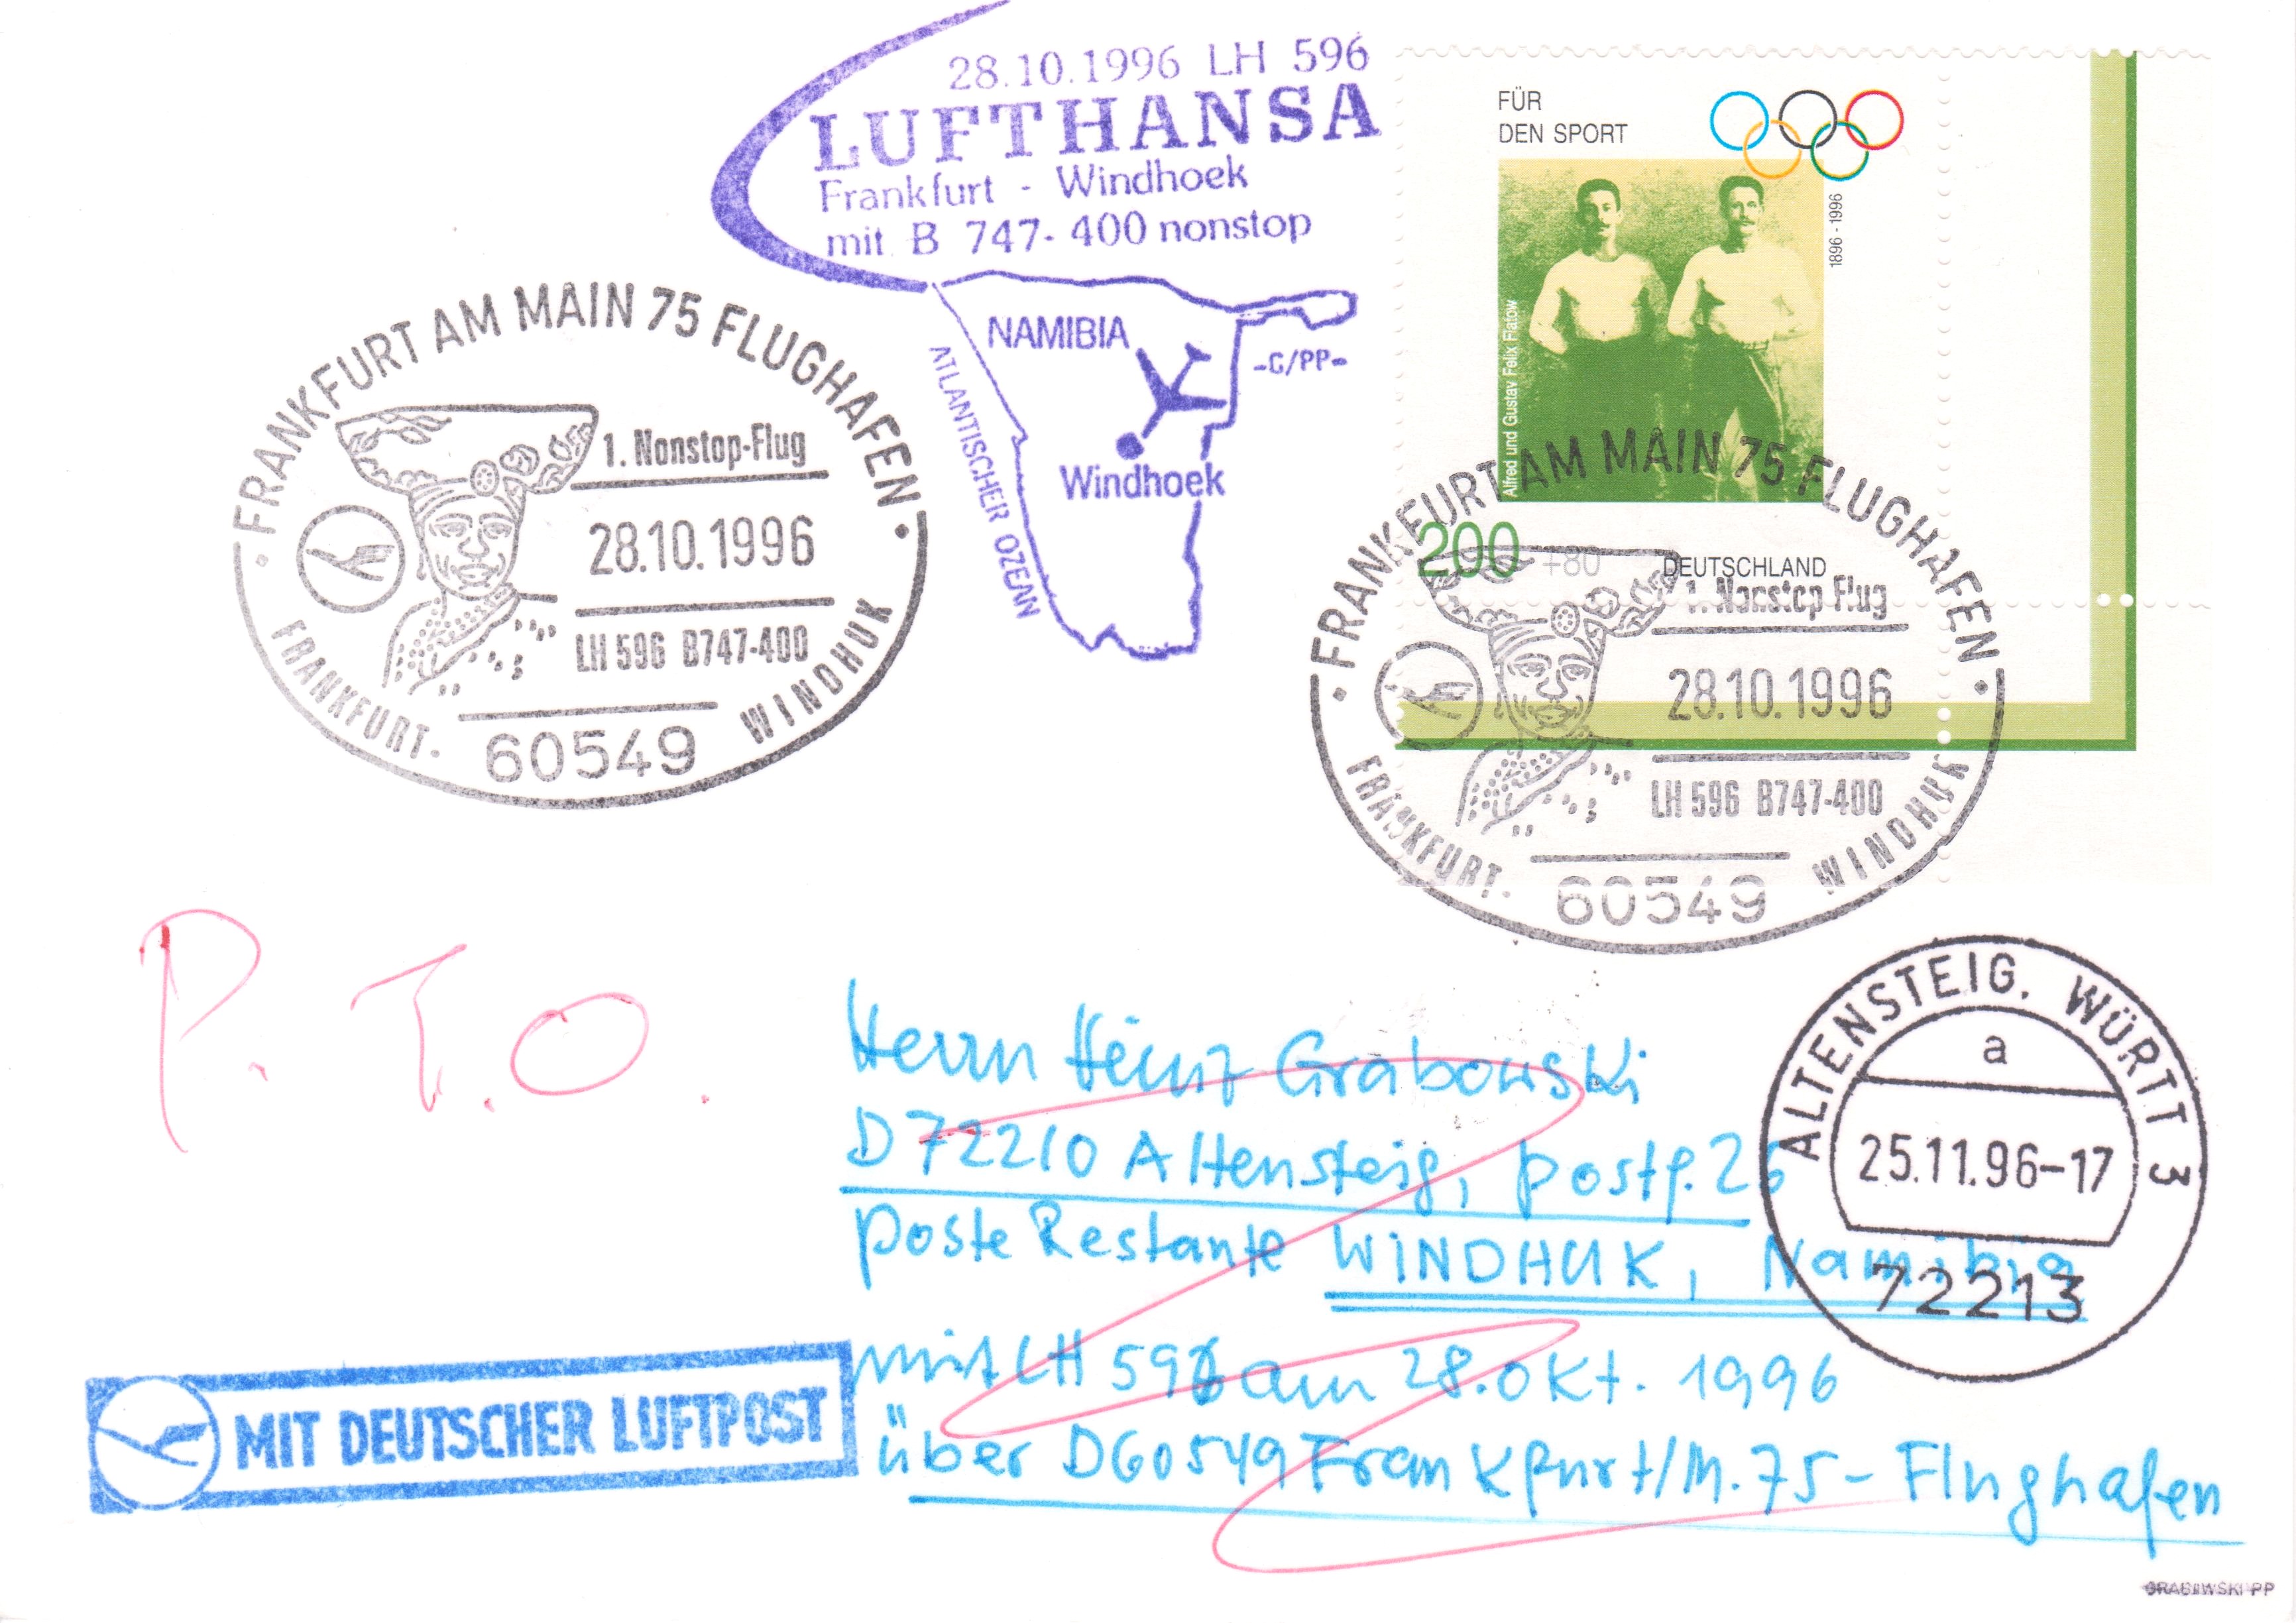 28.10.1996 LH 596
LUFTHANSA
Frankfurt - Windhoek
mit B 747-400 nonstop
NAMIBIA
-G/PP-
Windhoek
ATLANTISCHER OZEAN
FÜR
DEN SPORT
1896 - 1996
Alfred und Gustav Felix Flatow
200 +80
DEUTSCHLAND
· FRANKFURT AM MAIN 75 FLUGHAFEN ·
1. Nonstop-Flug
28.10.1996
LH 596 B747-400
FRANKFURT - WINDHUK
60549
· FRANKFURT AM MAIN 75 FLUGHAFEN ·
1. Nonstop Flug
28.10.1996
LH 596 B747-400
FRANKFURT - WINDHUK
60549
P. T. O.
ALTENSTEIG, WÜRTT 3
a
25.11.96-17
72213
Herrn Heinz Grabowski
D 72210 Altensteig, Postf. 26
Poste Restante WINDHUK, Namibia
mit LH 596 am 28. Okt. 1996
über D60549 Frankfurt/M. 75 - Flughafen
MIT DEUTSCHER LUFTPOST
GRABOWSKI PP